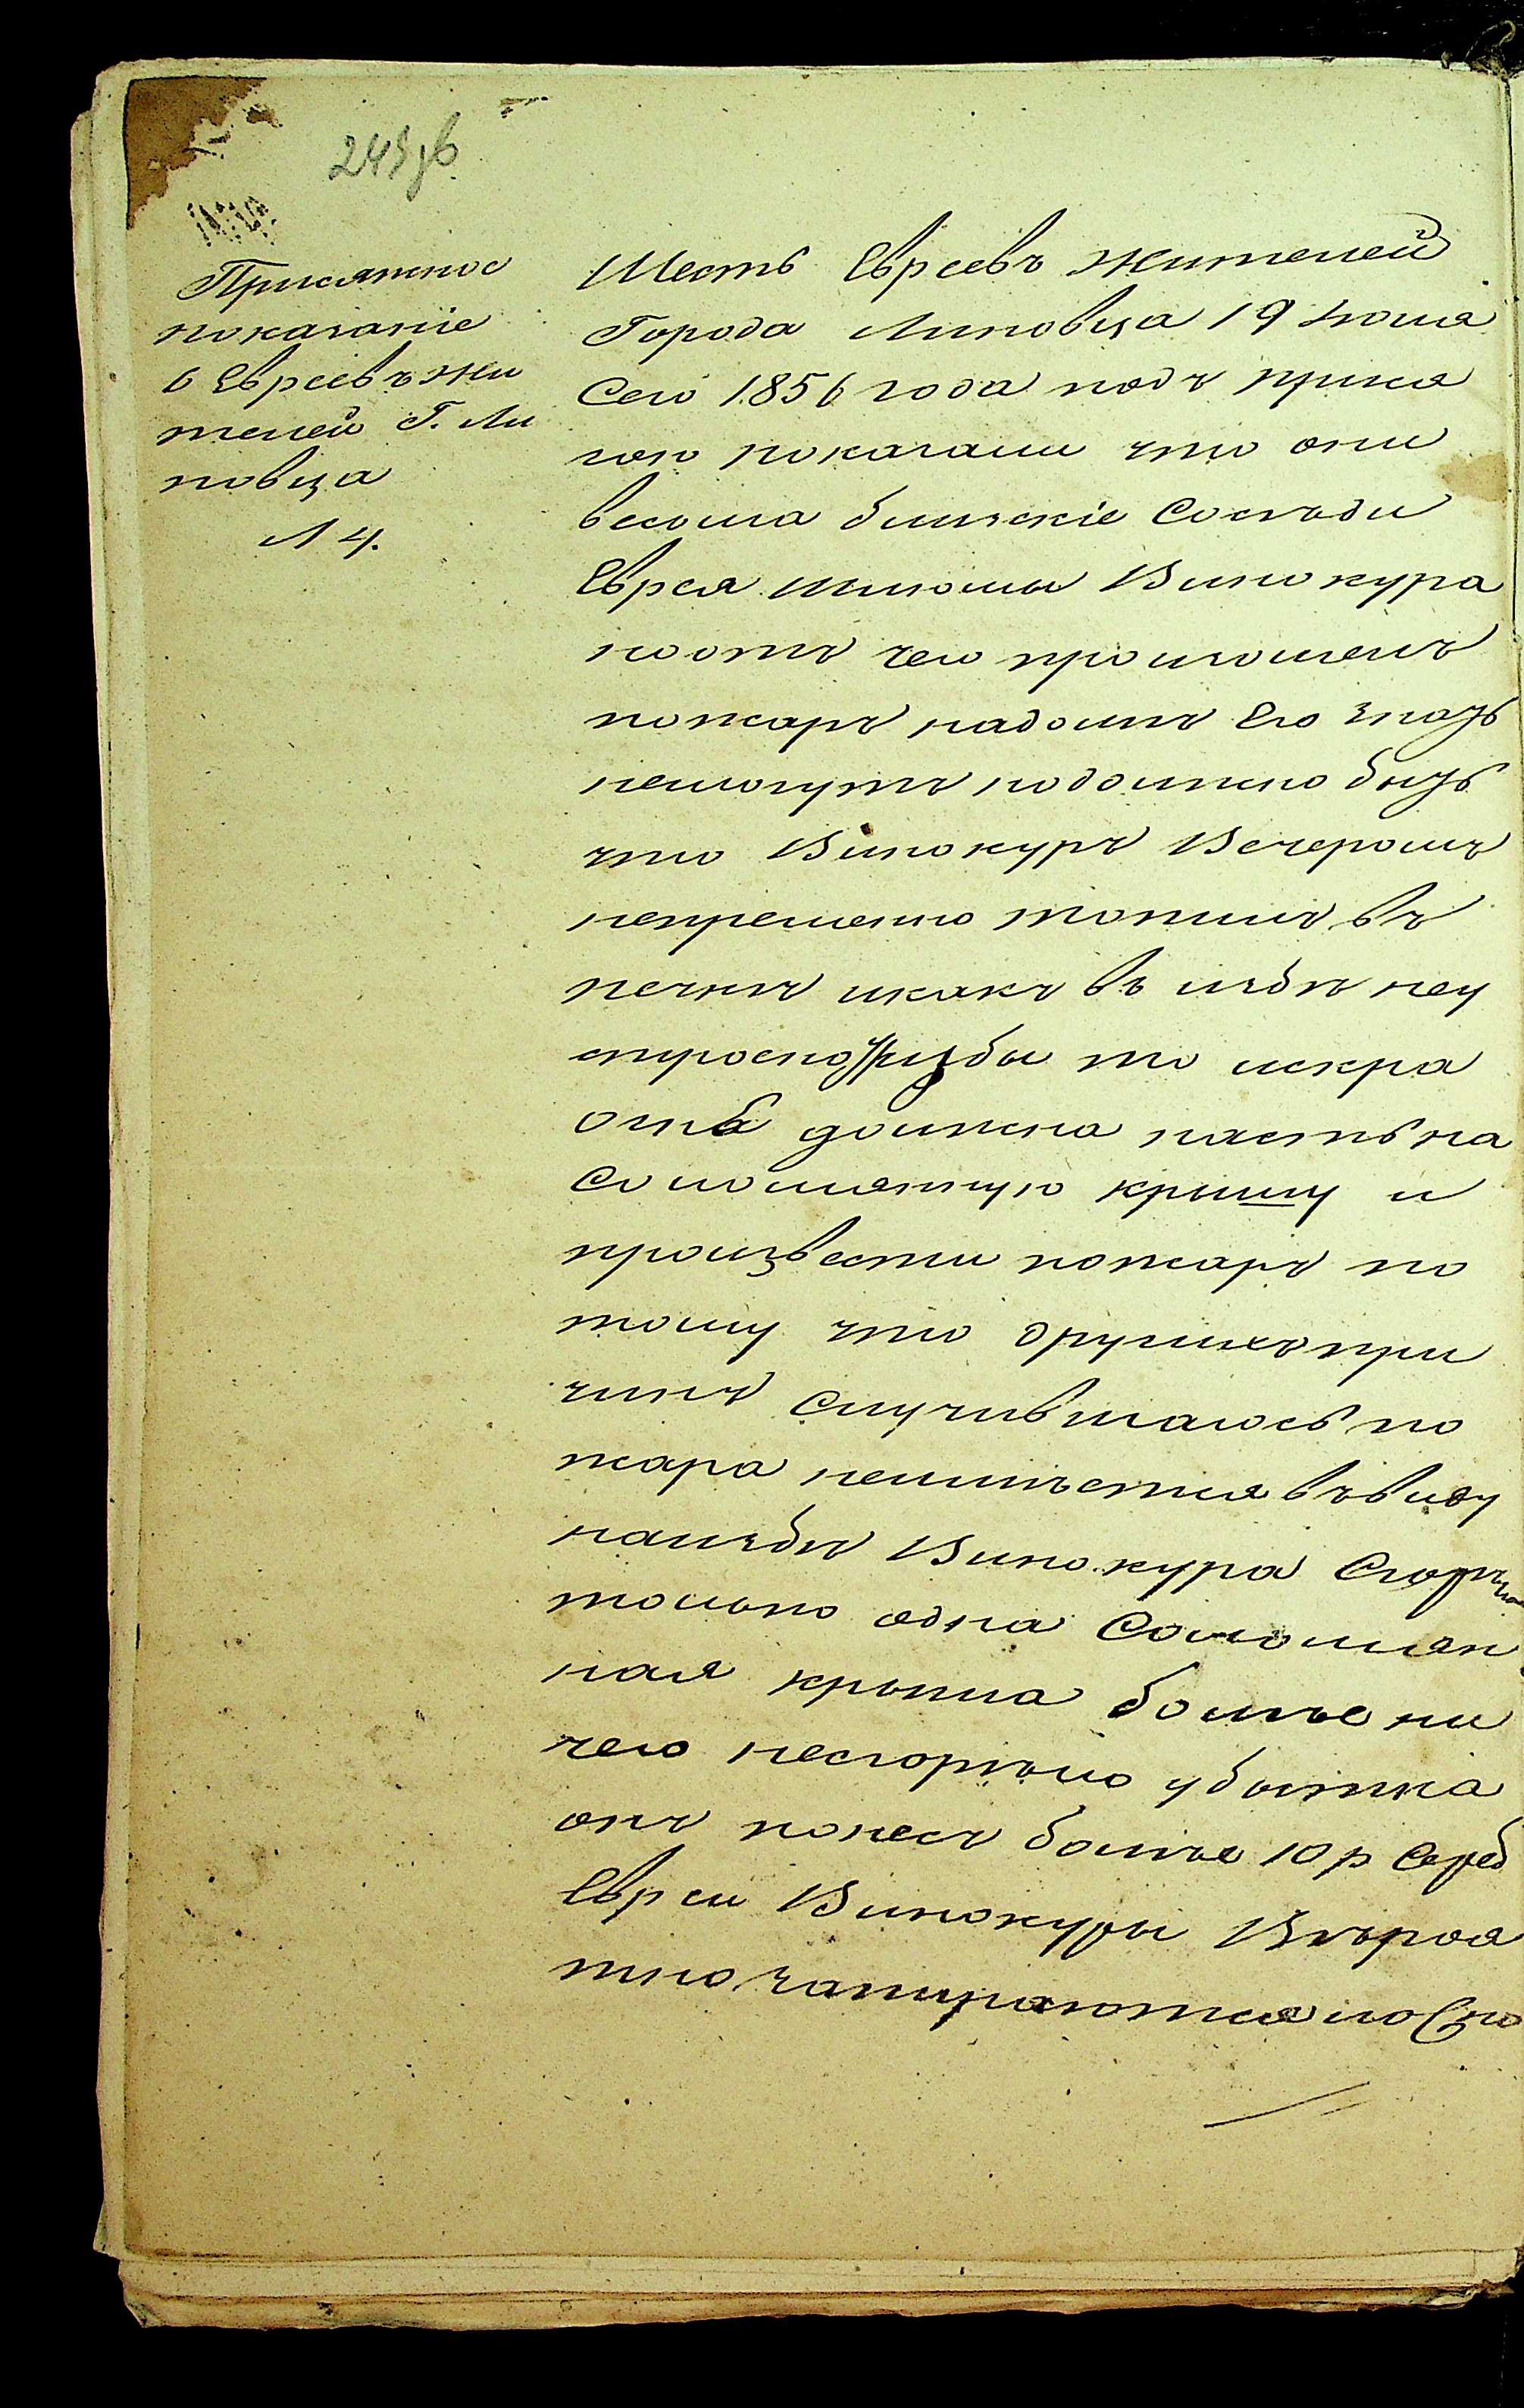 243 зв
Присяжное
показаніе
6 Евреевъ жи
телей Г. Ли
повца
Л 4.
Шесть Евреевъ жителей
Города Липовца 19 Іюля
сего 1856 года подъ прися
гою показали что они
весьма близскіе Сосѣди
Еврея Шліомы Винокура
ноотъ чего произошелъ
пожаръ надомѣ Его знать
немогутъ нодолжно быть
что Винокуръ Вечеромъ
непременно топилъ въ
печкѣ икакъ въ избѣ неу
строено трубы то искра
должна пасть на
Соломянную крышу и
произвести пожаръ по
тому что другихъ при
чинъ Случившагось по
жара неимѣется въ виду
наизбѣ Винокура Сгорѣла
только одна Соломян
ная крыша болѣе ни
чего несгорѣло убытка
онъ понесъ болѣе 10 р Сереб
Евреи Винокуры Вѣроя
тно запираются